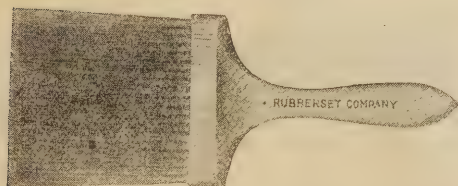 RUBBERSET COMPANY